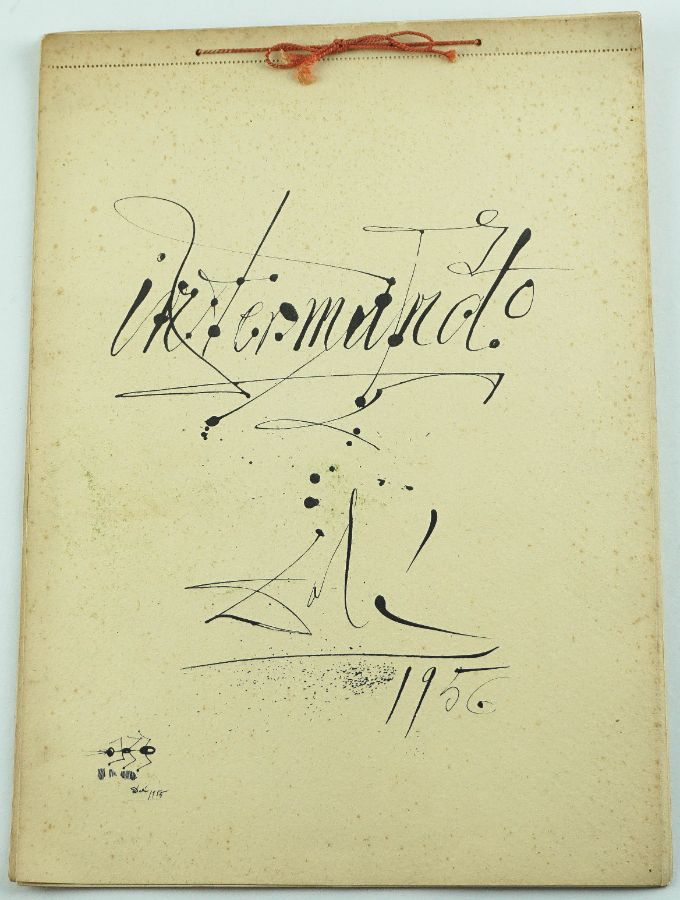 intermundo
Dalí
1956
Dalí 1955